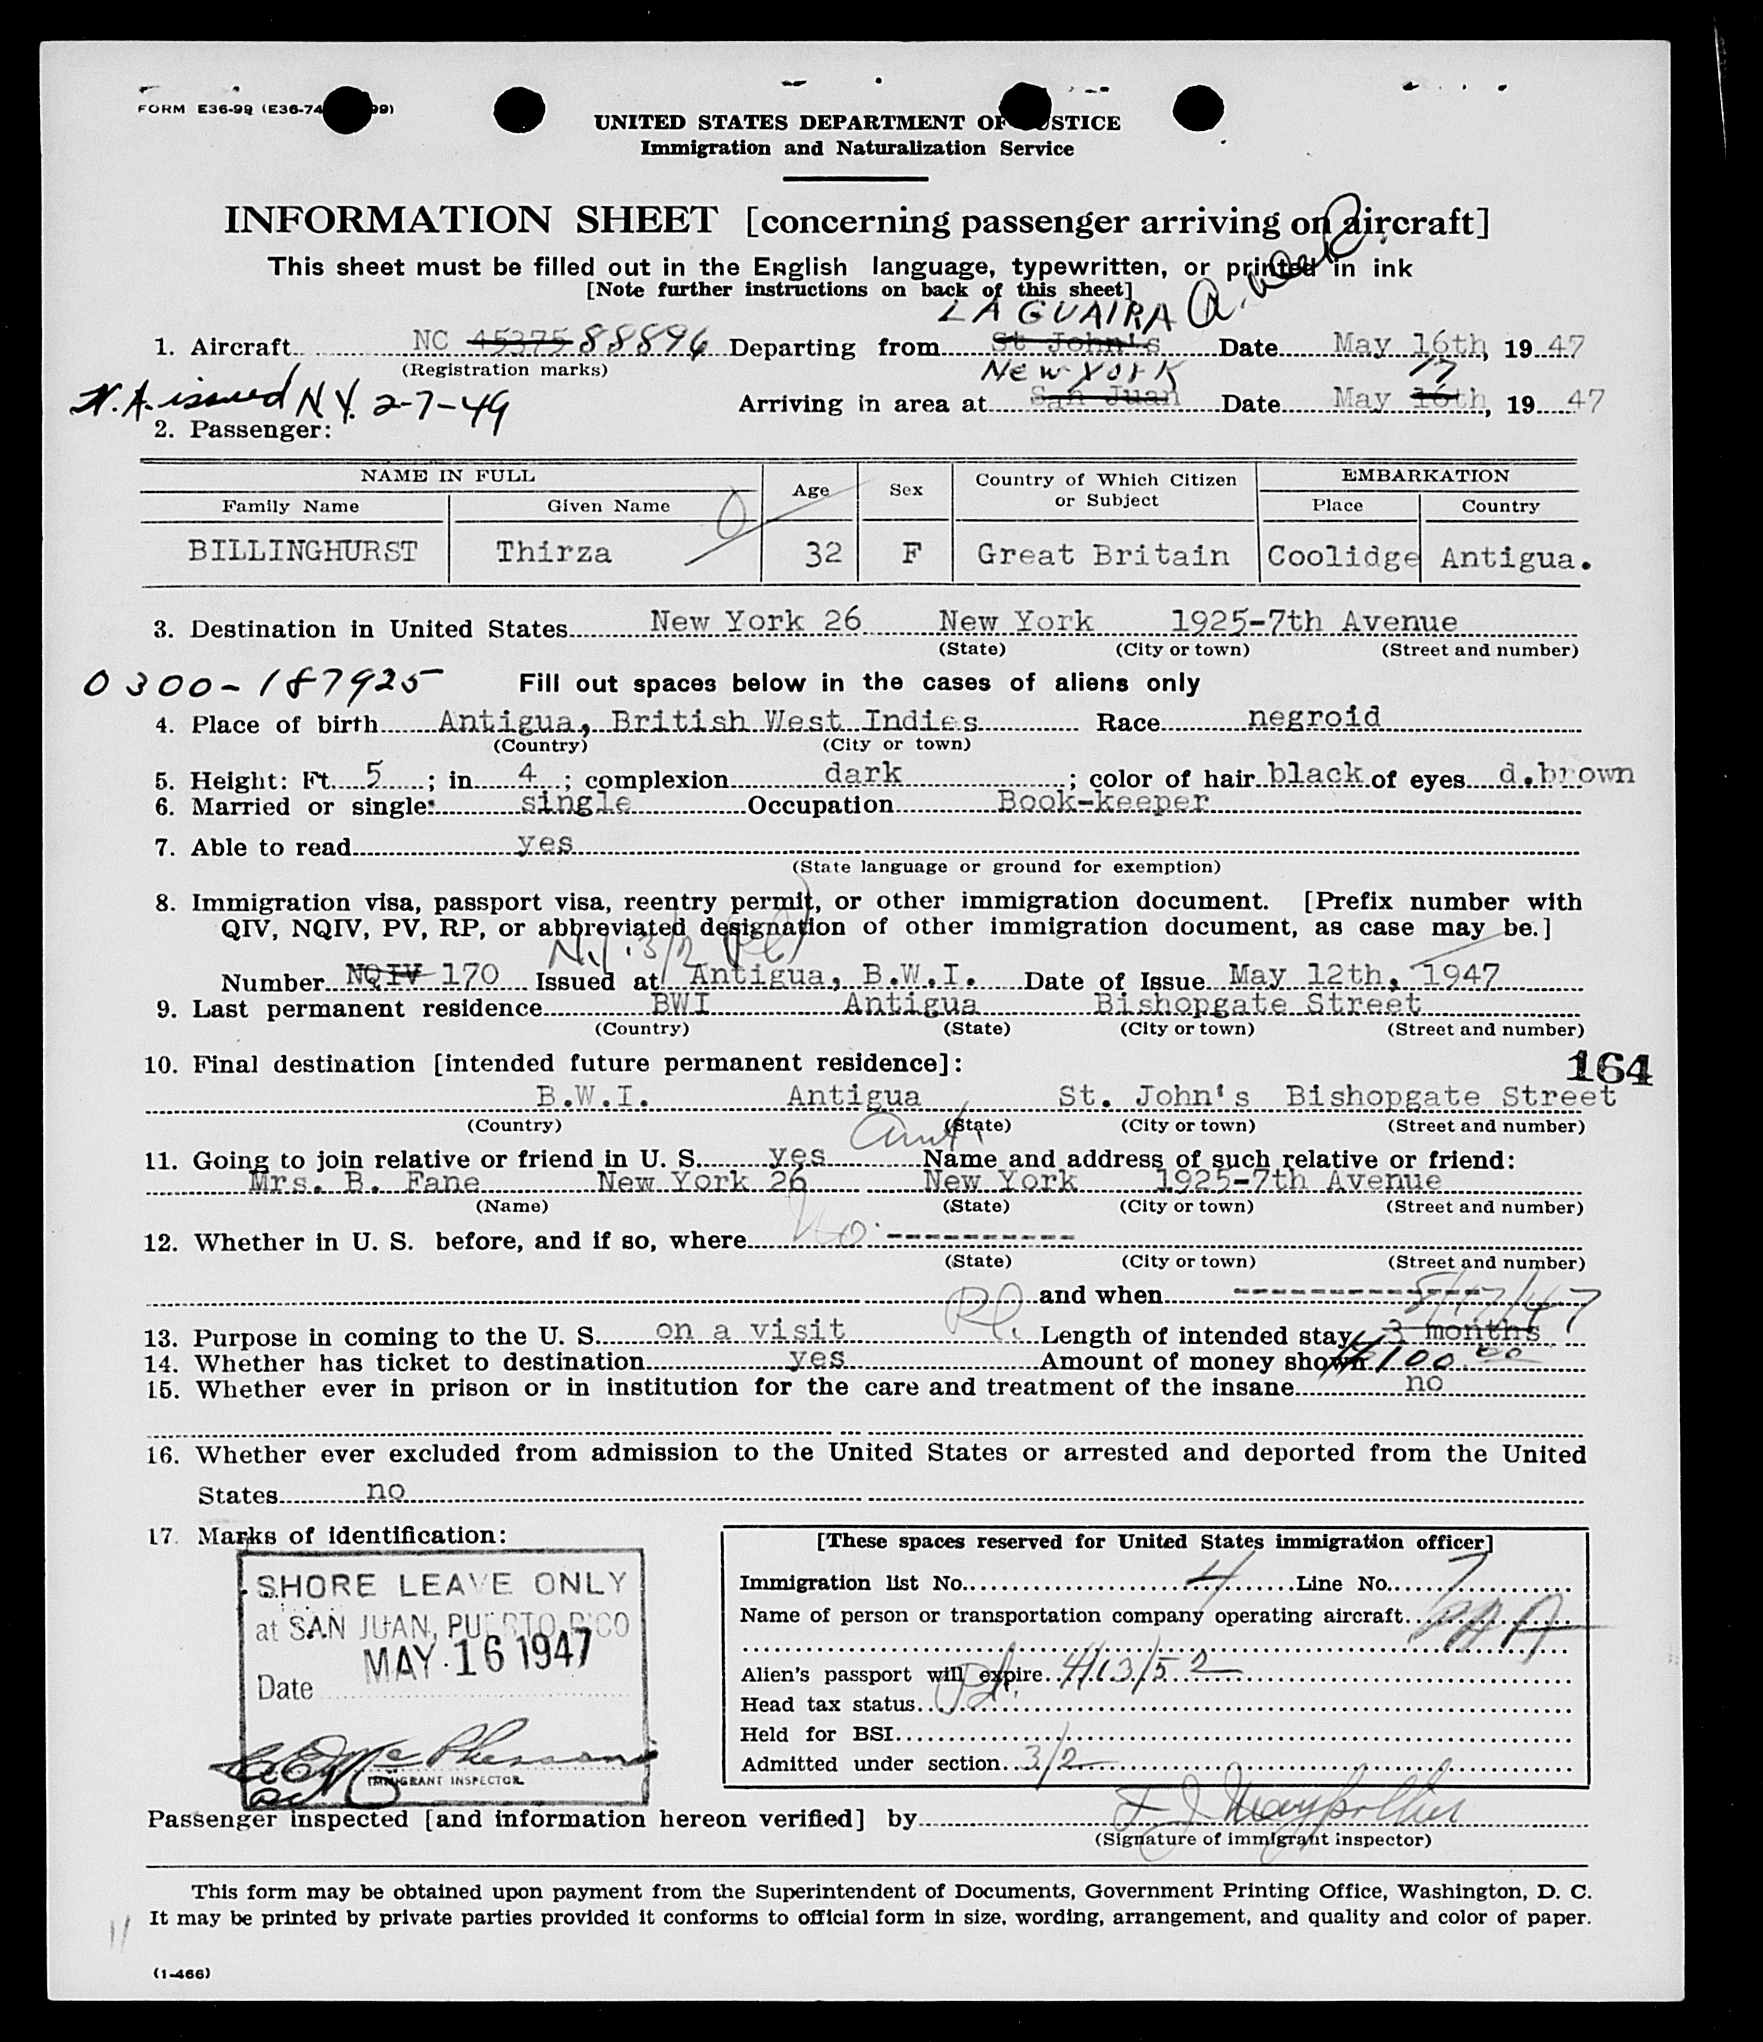 FORM E36-99 (E36-74 99)
UNITED STATES DEPARTMENT OF JUSTICE
Immigration and Naturalization Service
INFORMATION SHEET [concerning passenger arriving on aircraft]
This sheet must be filled out in the English language, typewritten, or printed in ink
[Note further instructions on back of this sheet]
LA GUAIRA
1. Aircraft NC 45375 88896 Departing from St John's Date May 16th, 19 47
(Registration marks) New York 17
N.A. issued N.Y. 2-7-49 Arriving in area at San Juan Date May 16th, 19 47
2. Passenger:
NAME IN FULL Age Sex Country of Which Citizen or Subject EMBARKATION
Family Name Given Name Place Country
BILLINGHURST Thirza 32 F Great Britain Coolidge Antigua.
3. Destination in United States New York 26 New York 1925-7th Avenue
(State) (City or town) (Street and number)
0300-187925 Fill out spaces below in the cases of aliens only
4. Place of birth Antigua, British West Indies Race negroid
(Country) (City or town)
5. Height: Ft. 5 ; in. 4 ; complexion dark ; color of hair black of eyes d.brown
6. Married or single: single Occupation Book-keeper
7. Able to read yes
(State language or ground for exemption)
8. Immigration visa, passport visa, reentry permit, or other immigration document. [Prefix number with
QIV, NQIV, PV, RP, or abbreviated designation of other immigration document, as case may be.]
3/2
Number NQIV 170 Issued at Antigua, B.W.I. Date of Issue May 12th, 1947
9. Last permanent residence BWI Antigua Bishopgate Street
(Country) (State) (City or town) (Street and number)
10. Final destination [intended future permanent residence]: 164
B.W.I. Antigua St. John's Bishopgate Street
(Country) (State) (City or town) (Street and number)
Aunt.
11. Going to join relative or friend in U. S. yes Name and address of such relative or friend:
Mrs. B. Fane New York 26 New York 1925-7th Avenue
(Name) (State) (City or town) (Street and number)
12. Whether in U. S. before, and if so, where No. ----------
(State) (City or town) (Street and number)
and when --------------
8/17/47
13. Purpose in coming to the U. S. on a visit Length of intended stay 3 months
14. Whether has ticket to destination yes Amount of money shown $100.00
15. Whether ever in prison or in institution for the care and treatment of the insane no
16. Whether ever excluded from admission to the United States or arrested and deported from the United
States no
17. Marks of identification:
SHORE LEAVE ONLY
at SAN JUAN, PUERTO RICO
MAY 16 1947
Date
IMMIGRANT INSPECTOR
[These spaces reserved for United States immigration officer]
Immigration list No. 4 Line No. 7
Name of person or transportation company operating aircraft. PAA
Alien's passport will expire. 4/13/52
Head tax status.
Held for BSI.
Admitted under section. 3/2
Passenger inspected [and information hereon verified] by
(Signature of immigrant inspector)
This form may be obtained upon payment from the Superintendent of Documents, Government Printing Office, Washington, D. C.
It may be printed by private parties provided it conforms to official form in size, wording, arrangement, and quality and color of paper.
11
(1-466)